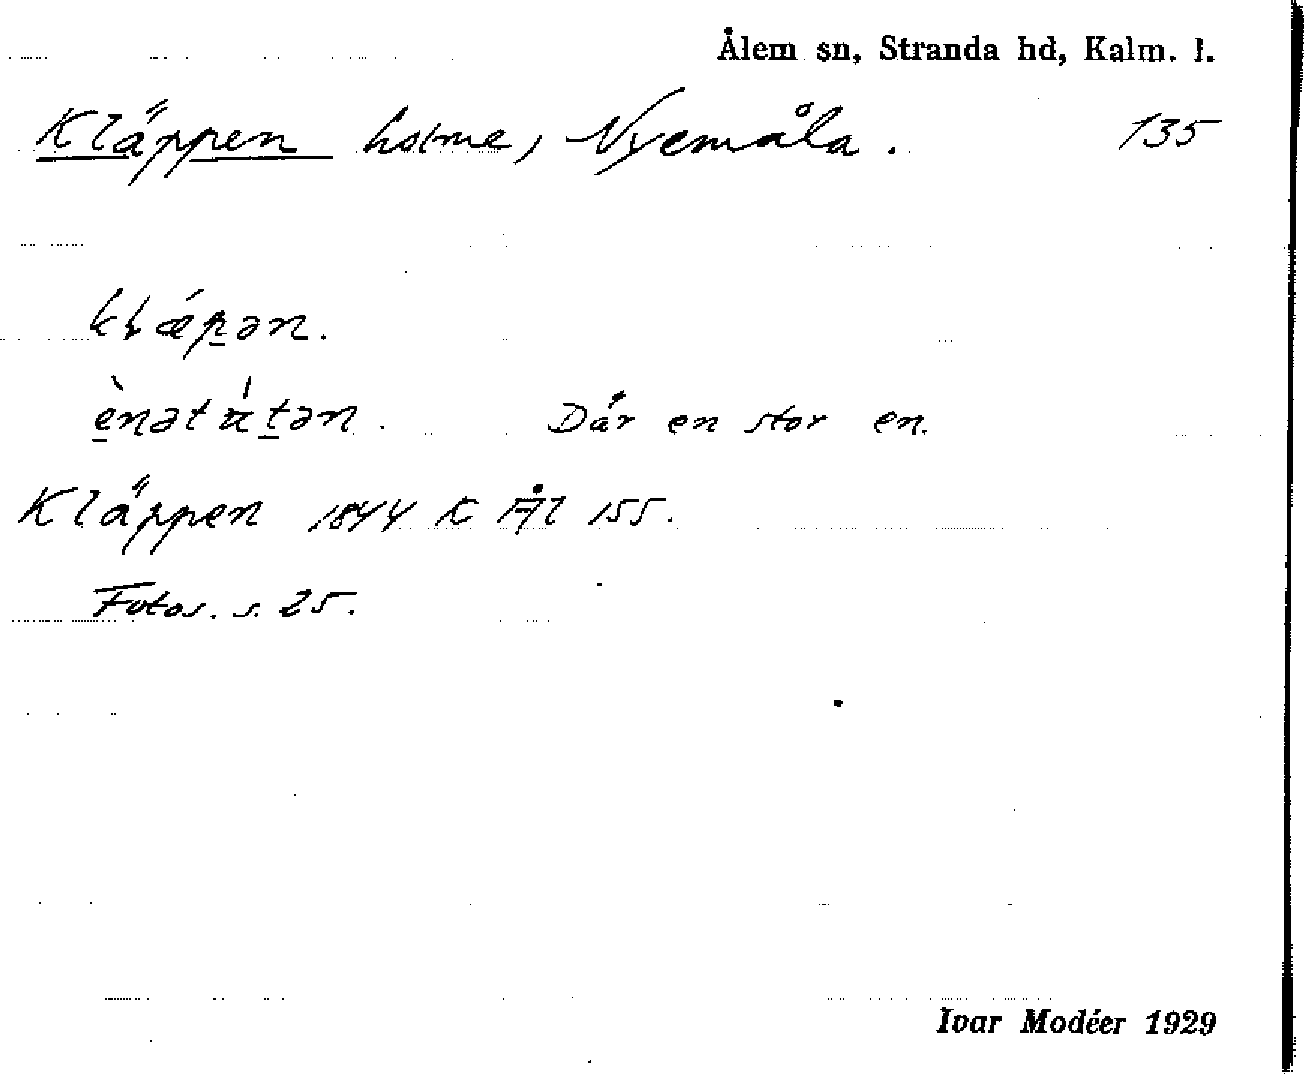 Ålem sn, Stranda hd, Kalm. l.
Kläppen holme, Nyemåla. 135
klǽpən.
ènətátən. Där en stor en.
Kläppen 1844 K Ål 155.
Fotos. s. 25.
Ivar Modéer 1929